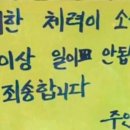 한 체력이 소
이상 일이 안됩
죄송합니다
주인